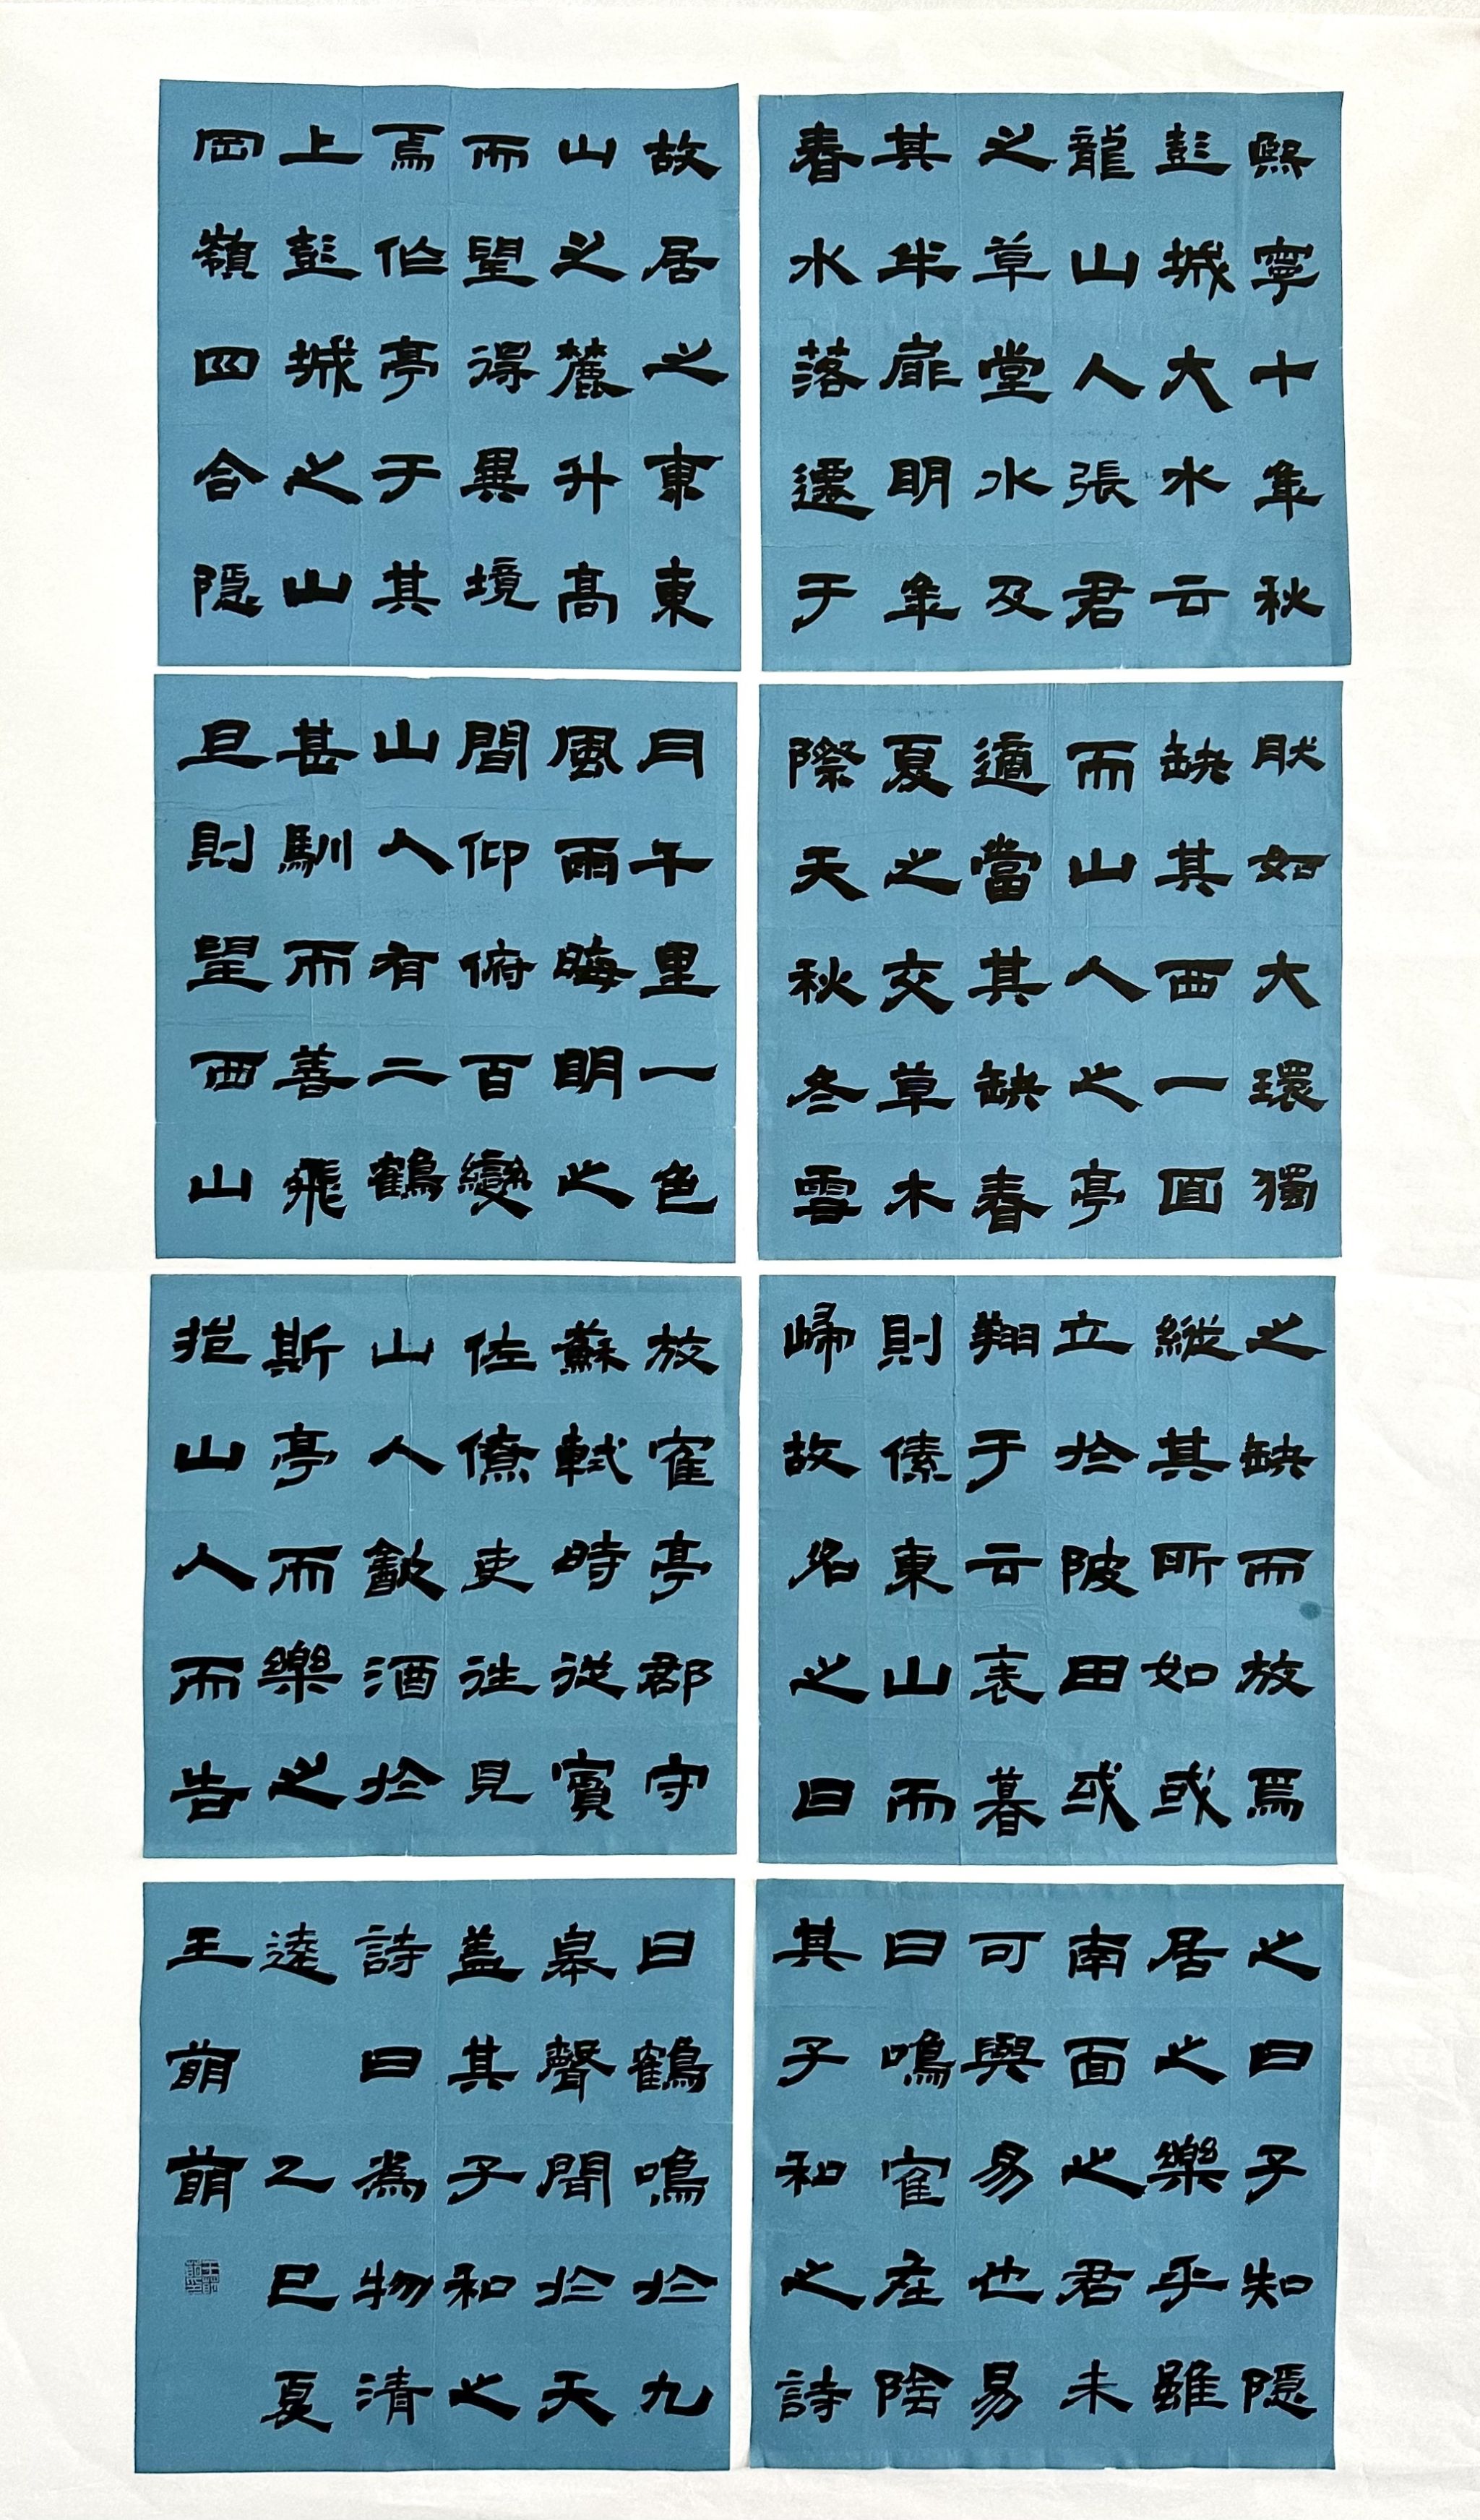 熙寧十年秋
彭城大水云
龍山人張君
之草堂水及
其半扉明年
春水落遷于
故居之東東
山之麓升高
而望得異境
焉作亭于其
上彭城之山
岡嶺四合隱
肰如大環獨
缺其西一面
而山人之亭
適當其缺春
夏之交草木
際天秋冬雪
月千里一色
風雨晦明之
間仰俯百變
山人有二鶴
甚馴而善飛
旦則望西山
之缺而放焉
縱其所如或
立於陂田或
翔于云表暮
則傃東山而
歸故名之曰
放寉亭郡守
蘇軾時從賓
佐僚吏往見
山人飲酒於
斯亭而樂之
挹山人而告
之曰子知隱
居之樂乎雖
南面之君未
可與易也易
曰鳴寉在陰
其子和之詩
曰鶴鳴於九
皋聲聞於天
蓋其子和之
詩曰為物清
遠 乙巳夏
王萌萌